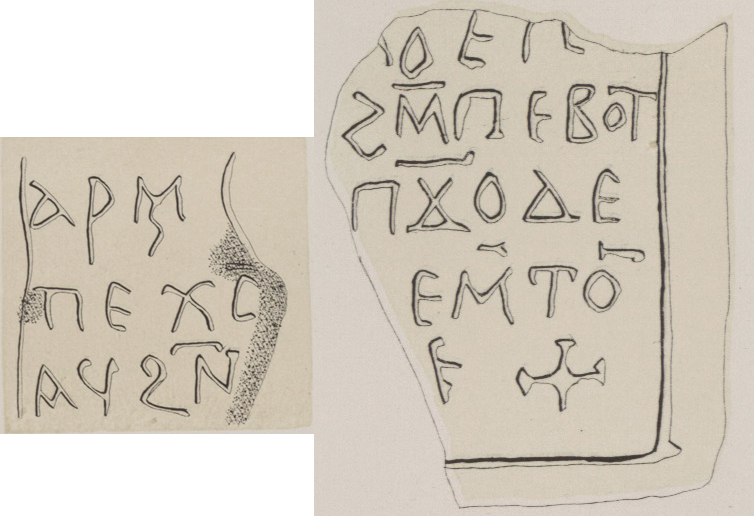 ΑΡΜ
ΠΕΧC
ΑΥΖΝ̅
ΟΕΠ
ΖΜ̅ΠΕΒΟΤ
ΠΧ̅ΟΔΕ
ΕΜΤΟ
Ε